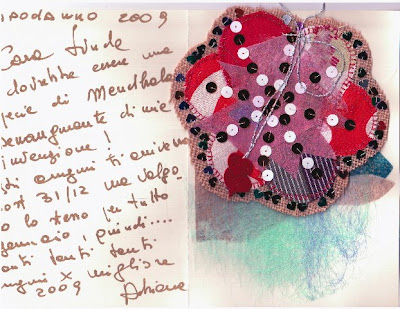 CAPODANNO 2009
Cara Linda
dovrebbe essere una
specie di Mendhala
beneaugurante di mia
invenzione!
gli auguri ti arrivera
post 31/12 ma valgo
no lo stesso per tutto
gennaio! quindi....
tanti tanti tanti
auguri x migliore
2009 Adriana